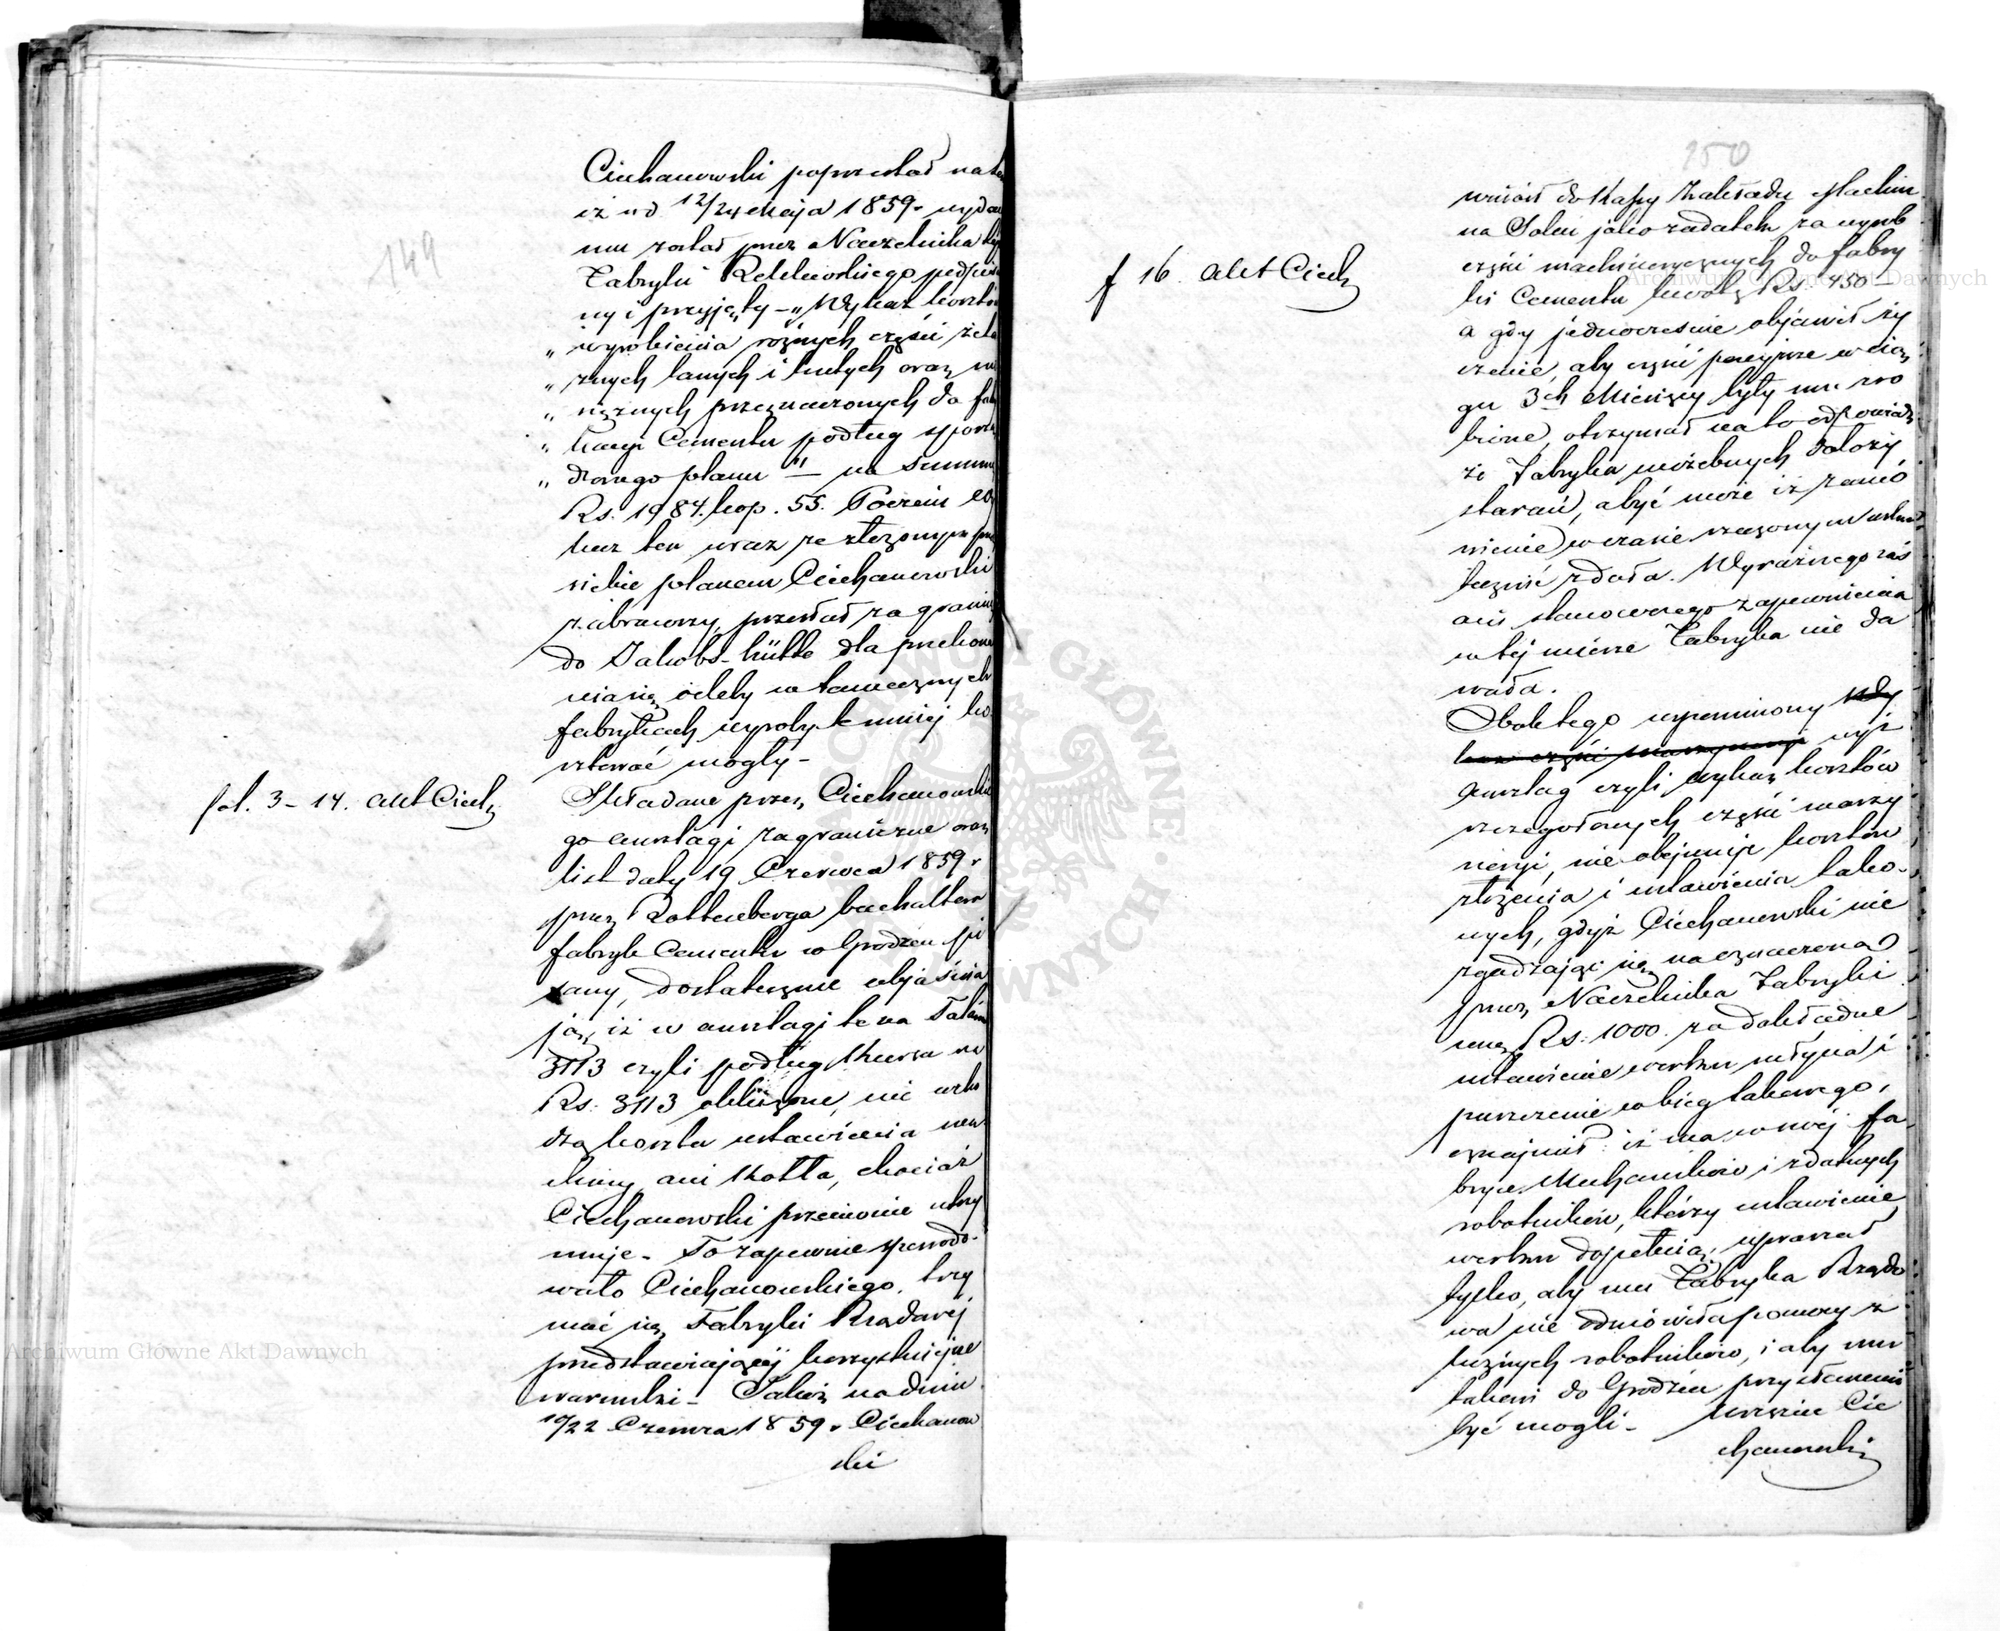 149
Ciechanowski poprzestał na
iż od 12/24 Maja 1859 r
mu został przez Naczelnika
Fabryki
ny i przyjęty – „Wykaz kosztów
„ wyrobienia różnych części żela
„ znych lanych i kutych oraz
„ siężnych przeznaczonych do fa
„ Cementu podług sporzą
„ dzonego planu" – na Summę
Rs. 1984. kop. 55. Poczem
kaz ten wraz ze złożonym przez
siebie planem Ciechanowski
zabrawszy, przesłał za granicę
do Jakobs-hütte dla przekona
nia się ileby w tamecznych
fabrykach wyroby te mniej ko
sztować mogły –
fol. 3 – 14. Akt Ciech
Składane przez Ciechanowskie
go anszlagi zagraniczne oraz
list daty 19 Czerwca 1859 r
przez Rottenberga buchaltera
fabryk Cementu w Grodzcu pi
sany, dostatecznie objaśnia
ją, iż w anszlagi te na Talarów
3113 czyli podług Kursu na
Rs. 3113 obliczone, nie wcho
dzą koszta ustawienia ma
chiny, ani Kotła, chociaż
Ciechanowski przeciwnie utrzy
muje – To zapewne spowodo-
wało Ciechanowskiego, trzy
mać się Fabryki Rządowéj
przedstawiającéj korzystniejsze
warunki – Jakoż na dniu
10/22 Czerwca 1859 r Ciechanow
ski
150
wniósł do Kassy Zakładu Machin
na Solcu jako zadatek za wyrob
części machinerycznych do fabry
f 16 Akt Ciech
ki Cementu kwotę Rs. 450 –
a gdy jednocześnie objawił ży
czenie, aby części powyższe w cią
gu 3ch Miesięcy były mu zro
bione, otrzymał na to odpowiedź
że Fabryka możebnych dołoży
starań, a być może iż zamó
wienie w czasie rzeczonym uskut
tecznić zdoła. Wyraźnego zaś
ani stanowczego zapewnienia
w téj mierze Fabryka nie da
wała.
Obok tego wspomniony
wyż
Anszlag czyli wykaz kosztów
szczegółowych części maszy
neryi, nie obejmuje kosztów
złożenia i ustawienia tako-
wych, gdyż Ciechanowski nie
zgadzając się na oznaczoną
przez Naczelnika Fabryki
cenę Rs. 1000. za dokładne
ustawienie werku młyna i
puszczenie w bieg takowego,
oznajmił: iż ma w swéj fa
bryce Mechaników i zdatnych
robotników, którzy ustawienie
werku dopełnią, upraszał
tylko, aby mu Fabryka Rządo
wa nie odmówiła pomocy z
licznych robotników, i aby mu
takowi do Grodzca przysłanemi
być mogli – Cie
chanowski